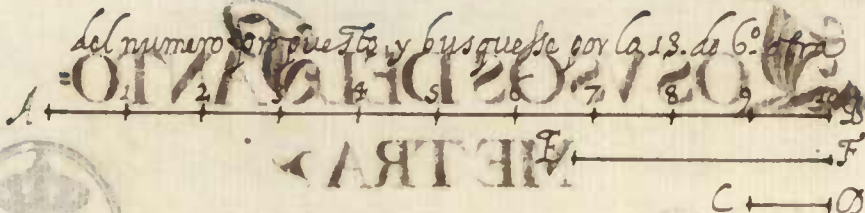 del numero propuesto, y busquesse por la 13. de 6º otra
A 1 2 3 4 5 6 7 8 9 10 B
E F
C D